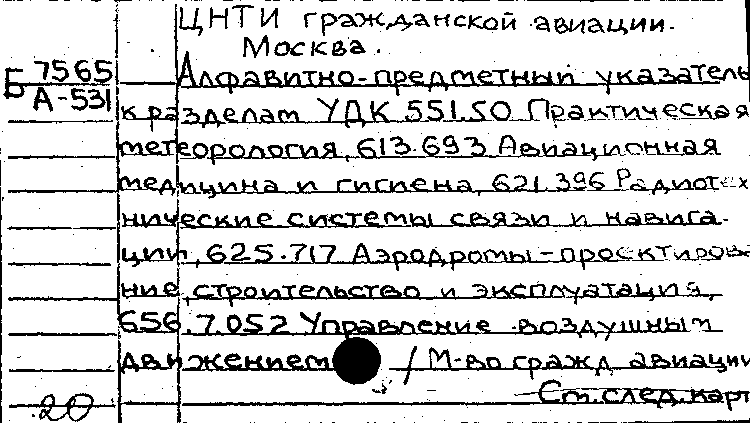 ЦНТИ гражданской авиации.
Москва.
Б 7565
А-531
Алфавитно-предметный указатель
к разделам УДК 551.50 Практическая
метеорология, 613.693 Авиационная
медицина и гигиена, 621.396 Радиотех
нические системы связи и навига-
ции, 625.717 Аэродромы-проектирова
ние, строительство и эксплуатация,
656.7.052 Управление воздушным
движением / М-во гражд авиации
См. след. карт
20